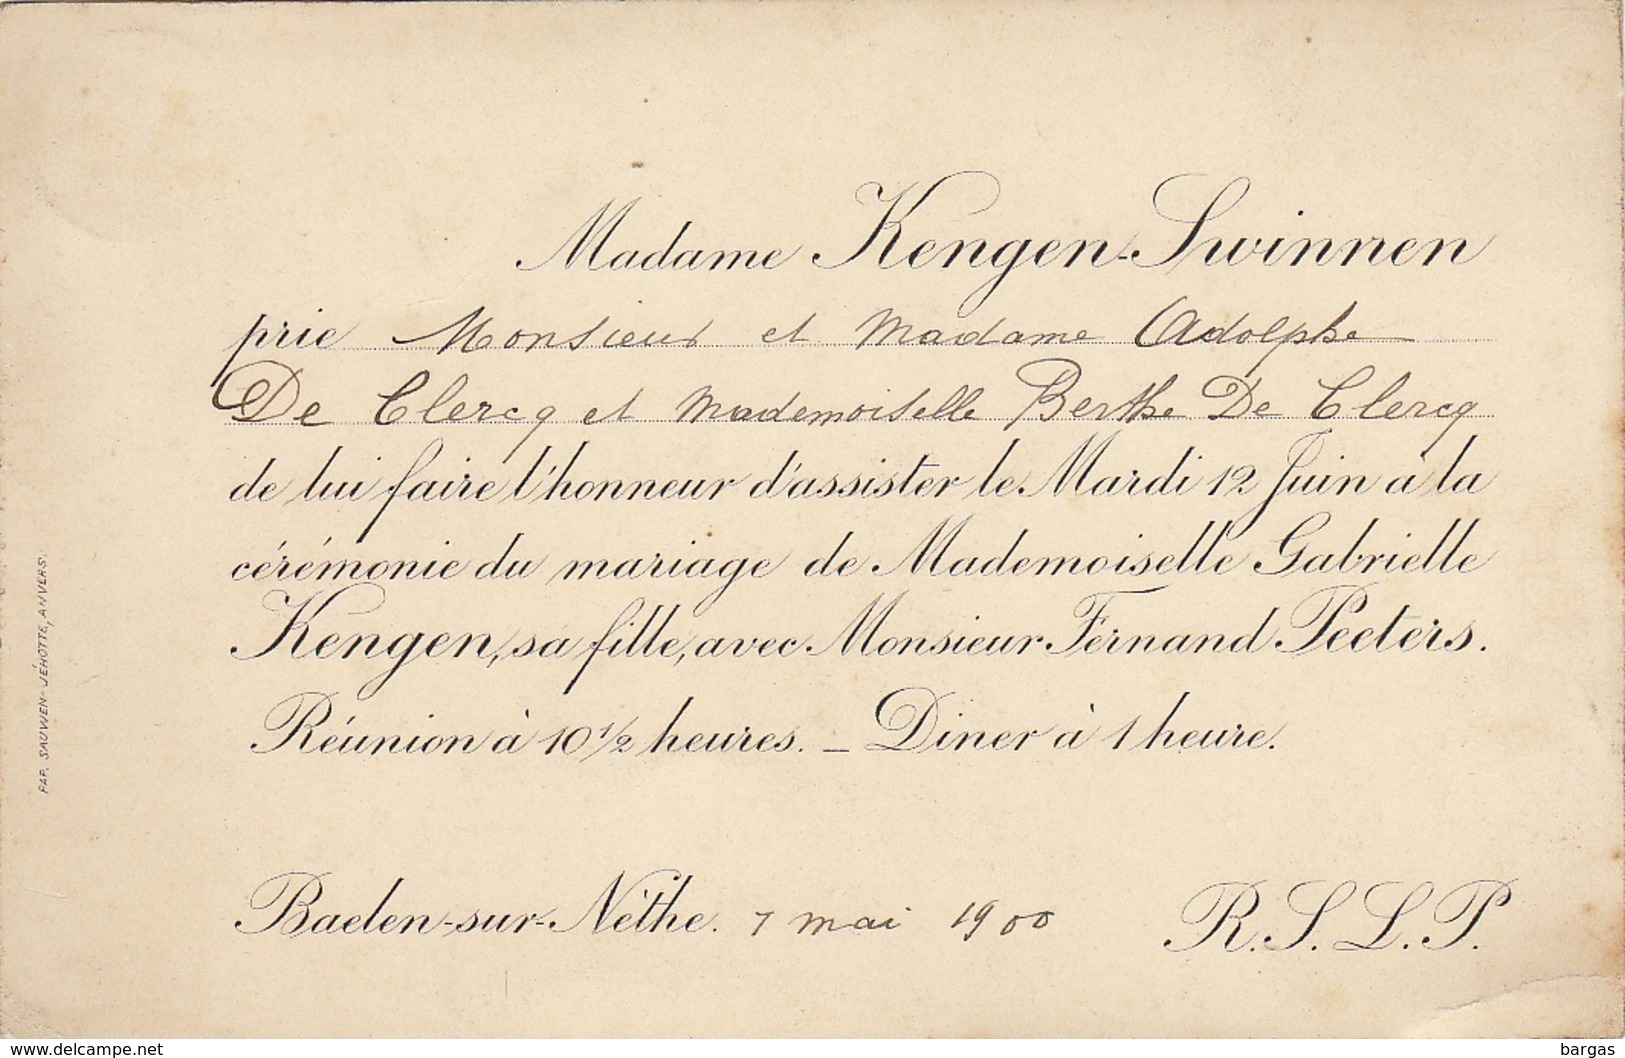 Madame Kengen-Swinnen
prie Monsieur et Madame Adolphe
De Clercq et Mademoiselle Berthe De Clercq
de lui faire l'honneur d'assister le Mardi 12 Juin à la
cérémonie du mariage de Mademoiselle Gabrielle
Kengen, sa fille, avec Monsieur Fernand Peeters.
Réunion à 10 1/2 heures. _ Diner à 1 heure.
Baelen-sur-Nèthe. 7 mai 1900 R.S.L.P.
PAP. SAUWEN-JÉHOTTE, ANVERS.
www.delcampe.net bargas